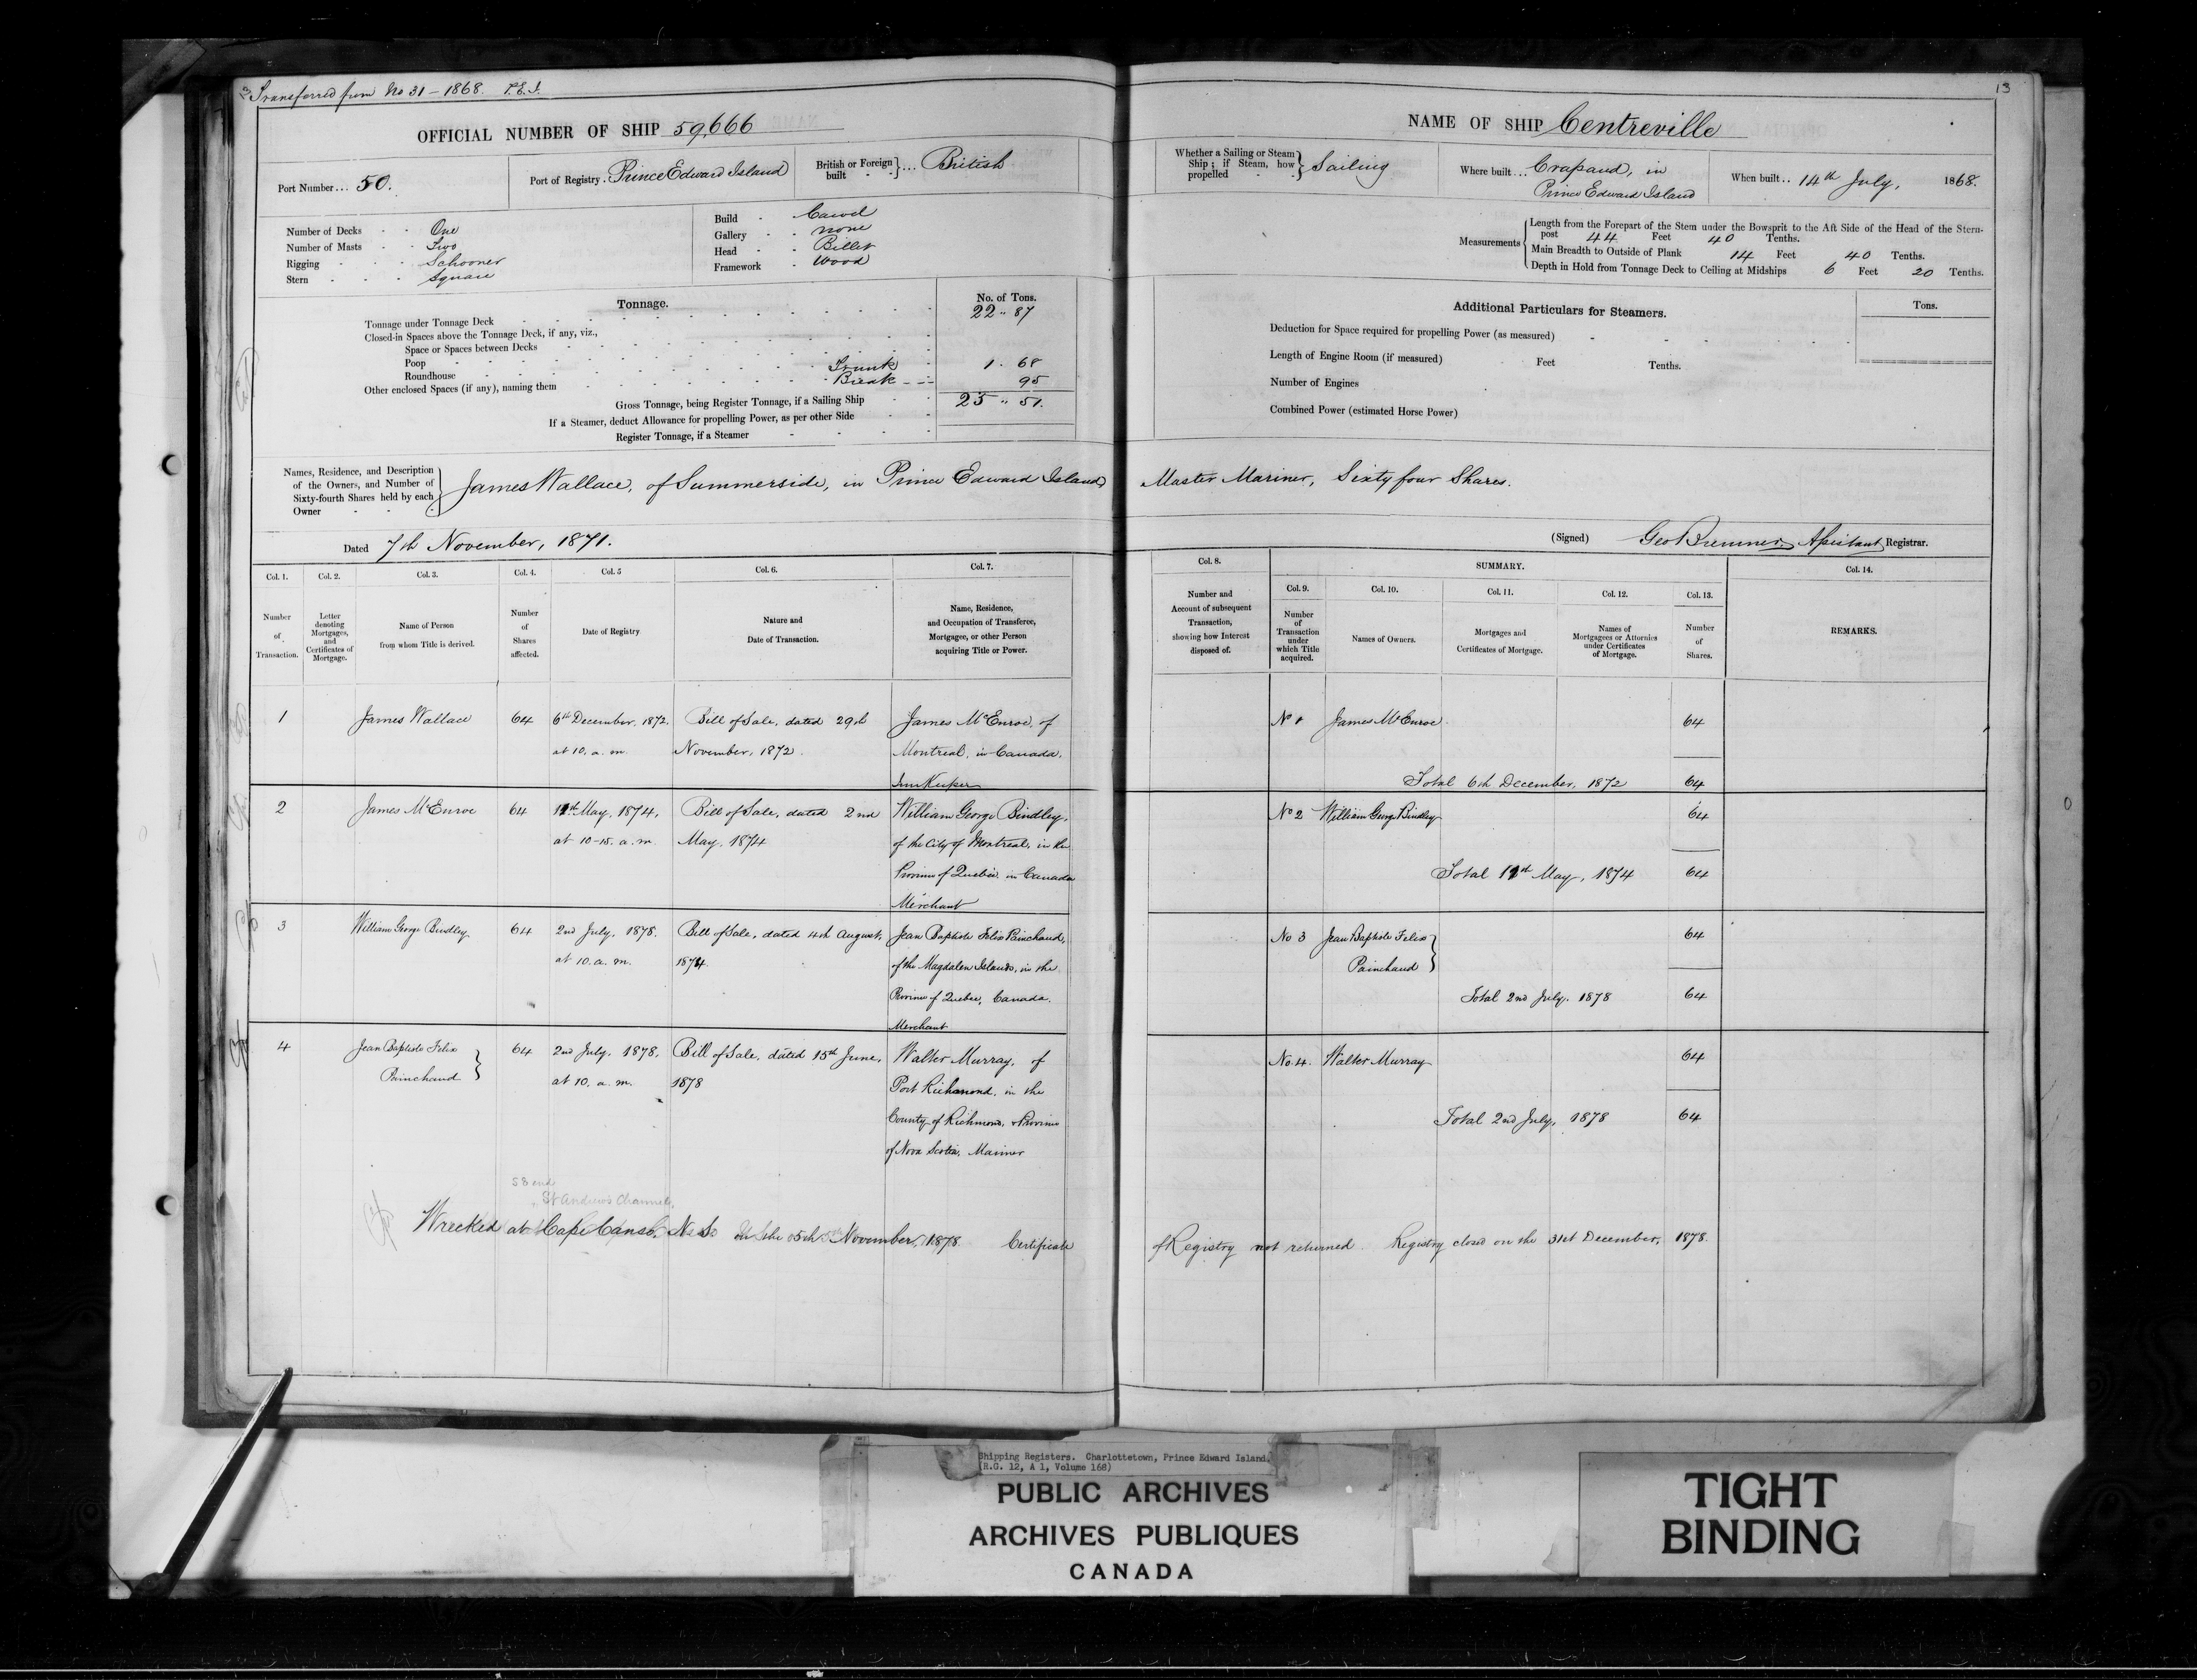 Transferred from No 31 - 1868. P.E.I.
13
OFFICIAL NUMBER OF SHIP 59,666
NAME OF SHIP Centreville
Port Number... 50.
Port of Registry. Prince Edward Island
British or Foreign built } ... British
Whether a Sailing or Steam Ship; if Steam, how propelled } Sailing
Where built... Crapaud, in Prince Edward Island
When built.. 14th July, 1868.
Number of Decks - - One
Number of Masts - - Two
Rigging - - - Schooner
Stern - - - Square
Build - Carvel
Gallery - none
Head - - Billet
Framework - Wood
Measurements { Length from the Forepart of the Stem under the Bowsprit to the Aft Side of the Head of the Stern-
post 44 Feet 40 Tenths.
Main Breadth to Outside of Plank 14 Feet 40 Tenths.
Depth in Hold from Tonnage Deck to Ceiling at Midships 6 Feet 20 Tenths.
Tonnage.
No. of Tons.
Tonnage under Tonnage Deck 22 .. 87
Closed-in Spaces above the Tonnage Deck, if any, viz.,
Space or Spaces between Decks
Poop
Roundhouse Trunk 1 . 68
Other enclosed Spaces (if any), naming them Break 95
Gross Tonnage, being Register Tonnage, if a Sailing Ship 25 .. 51.
If a Steamer, deduct Allowance for propelling Power, as per other Side
Register Tonnage, if a Steamer
Additional Particulars for Steamers.
Tons.
Deduction for Space required for propelling Power (as measured)
Length of Engine Room (if measured) Feet Tenths.
Number of Engines
Combined Power (estimated Horse Power)
Names, Residence, and Description
of the Owners, and Number of
Sixty-fourth Shares held by each
Owner
James Wallace, of Summerside, in Prince Edward Island, Master Mariner, Sixty four Shares.
Dated 7th November, 1871.
(Signed) Geo Bremner, Assistant Registrar.
Col. 1.
Number
of
Transaction.
Col. 2.
Letter
denoting
Mortgages,
and
Certificates of
Mortgage.
Col. 3.
Name of Person
from whom Title is derived.
Col. 4.
Number
of
Shares
affected.
Col. 5
Date of Registry
Col. 6.
Nature and
Date of Transaction.
Col. 7.
Name, Residence,
and Occupation of Transferee,
Mortgagee, or other Person
acquiring Title or Power.
Col. 8.
Number and
Account of subsequent
Transaction,
showing how Interest
disposed of.
SUMMARY.
Col. 9.
Number
of
Transaction
under
which Title
acquired.
Col. 10.
Names of Owners.
Col. 11.
Mortgages and
Certificates of Mortgage.
Col. 12.
Names of
Mortgagees or Attornies
under Certificates
of Mortgage.
Col. 13.
Number
of
Shares.
Col. 14.
REMARKS.
1 James Wallace 64 6th December, 1872. Bill of Sale, dated 29th James McEnroe, of
at 10. a. m. November, 1872. Montreal, in Canada,
Inn Keeper
No 1 James McEnroe 64
Total 6th December, 1872 64
2 James McEnroe 64 11th May, 1874, Bill of Sale, dated 2nd William George Bindley,
at 10-15. a. m. May, 1874 of the City of Montreal, in the
Province of Quebec in Canada
Merchant
No 2 William George Bindley 64
Total 11th May, 1874 64
3 William George Bindley 64 2nd July, 1878. Bill of Sale, dated 4th August, Jean Baptiste Felix Painchaud,
at 10. a. m. 1874. of the Magdalen Islands, in the
Province of Quebec, Canada.
Merchant
No 3 Jean Baptiste Felix 64
Painchaud }
Total 2nd July. 1878 64
4 Jean Baptiste Felix 64 2nd July, 1878, Bill of Sale, dated 15th June, Walter Murray, of
Painchaud } at 10. a. m. 1878 Port Richmond, in the
County of Richmond, & Province
of Nova Scotia, Mariner
No. 4. Walter Murray 64
Total 2nd July, 1878 64
St Andrews Channel,
Wrecked at Cape Canso, N.S. on the 5th November, 1878. Certificate of Registry not returned. Registry closed on the 31st December, 1878.
Shipping Registers. Charlottetown, Prince Edward Island.
(R.G. 12, A 1, Volume 168)
PUBLIC ARCHIVES
ARCHIVES PUBLIQUES
CANADA
TIGHT
BINDING